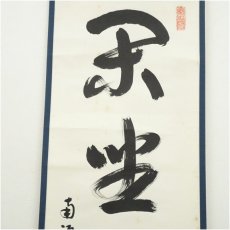 閑坐
南